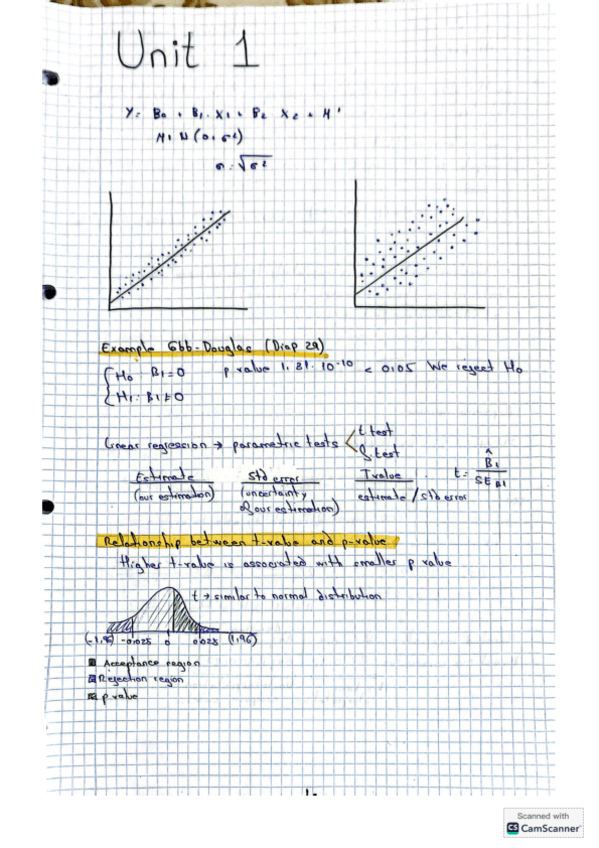 Unit 1
Y = B₀ + B₁ · X₁ + B₂ X₂ + M
M ~ N (0, σ²)
σ = √σ²
Example Cobb-Douglas (Diap 29)
H₀ : B₁ = 0 p value 1,81 · 10⁻¹⁰ < 0,05 We reject H₀
H₁ : B₁ ≠ 0
Linear regression → parametric tests t test
f test
Estimate Std error T value t = B̂₁ / SE B₁
(our estimation) (uncertainty estimate / std error
of our estimation)
Relationship between t-value and p-value
Higher t-value is associated with smaller p value
t → similar to normal distribution
(-1,96) -0,025 0 0,025 (1,96)
Acceptance region
Rejection region
p value
1.
Scanned with
CS CamScanner